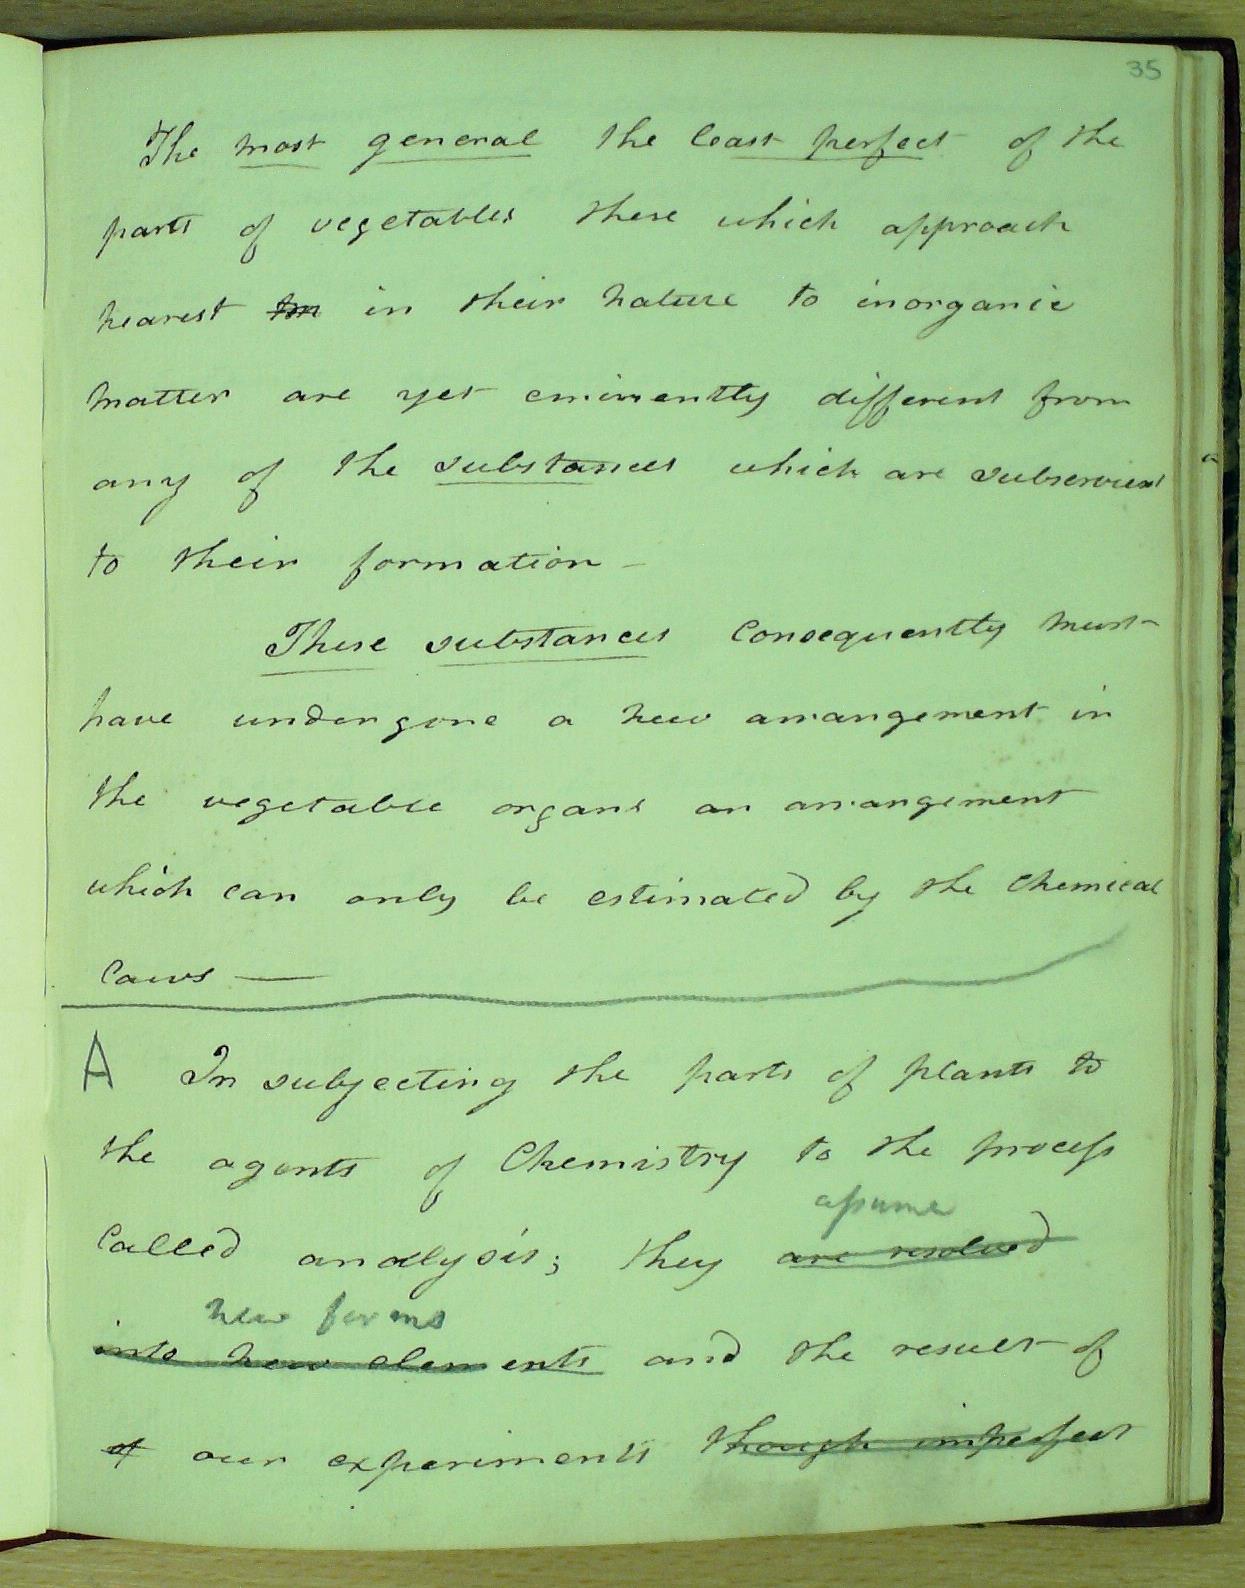 35
The most general the least perfect of the
parts of vegetables these which approach
nearest in their nature to inorganic
matter are yet eminently different from
any of the substances which are subservient
to their formation –
These substances consequently must
have undergone a new arrangement in
the vegetable organs an arrangement
which can only be estimated by the chemical
laws —
A In subjecting the parts of plants to
the agents of Chemistry to the process
assume
called analysis; they are resolved
new forms
into new elements and the result of
of our experiments though imperfect